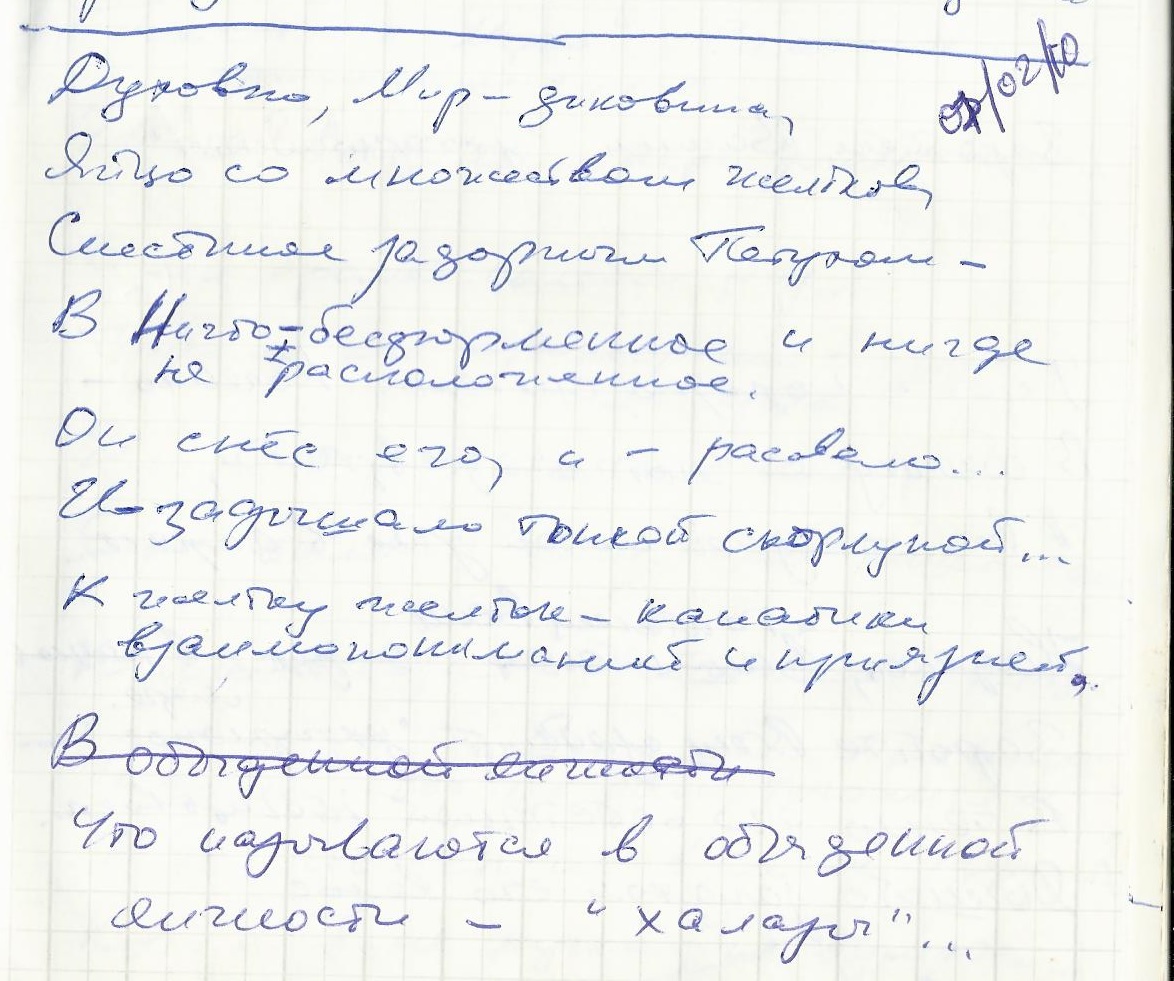 07/02/10
Духовно, Мир-диковина,
Яйцо со множеством желтков,
Снесённое задорным Петухом –
В Ничто-бесформенное и нигде
не расположенное.
Он снёс его, и – расовело...
И задышало тонкой скорлупой...
К желтку желток – канатики
взаимопониманий и приязней,
В обыденной личности
Что называются в обыденной
личности – "халазы"...